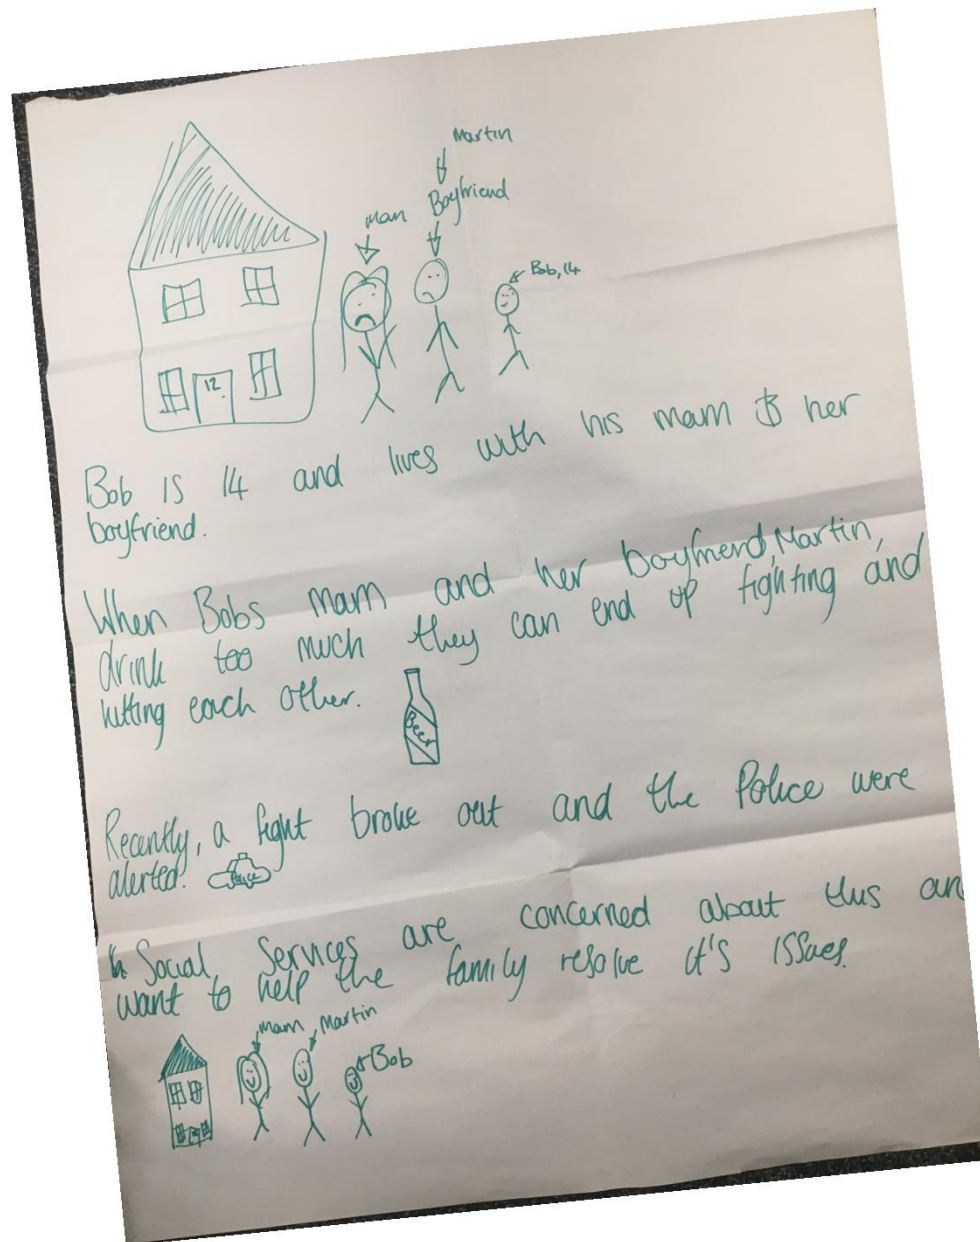 Martin
Boyfriend
Mam
Bob, 14
12
Bob is 14 and lives with his mam & her
boyfriend.
When Bobs mam and her boyfriend, Martin,
drink too much they can end up fighting and
hitting each other.
Beer
Recently, a fight broke out and the Police were
alerted.
Police
Social Services are concerned about this an
want to help the family resolve it's issues.
Mam Martin
Bob